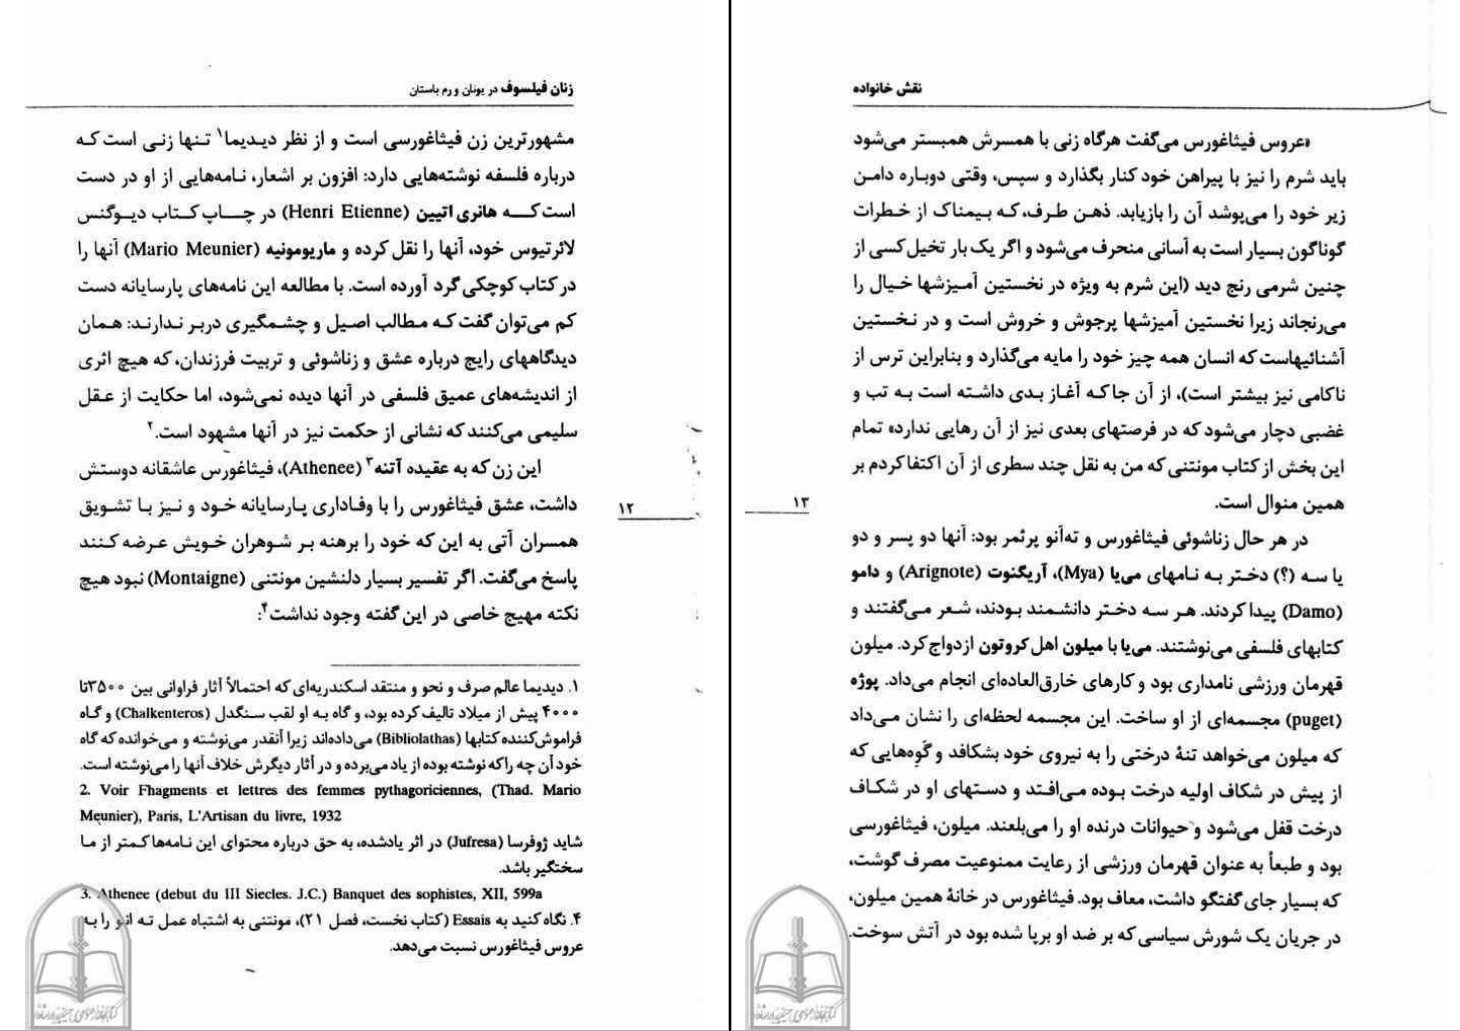 زنان فیلسوف در یونان و رم باستان
مشهورترین زن فیثاغورسی است و از نظر دیدیما۱ تنها زنی است که
درباره فلسفه نوشته‌هایی دارد: افزون بر اشعار، نامه‌هایی از او در دست
است که هانری اتیین (Henri Etienne) در چاپ کتاب دیوگنس
لائرتیوس خود، آنها را نقل کرده و ماریومونیه (Mario Meunier) آنها را
در کتاب کوچکی گرد آورده است. با مطالعه این نامه‌های پارسایانه دست
کم می‌توان گفت که مطالب اصیل و چشمگیری دربر ندارند: همان
دیدگاههای رایج درباره عشق و زناشوئی و تربیت فرزندان، که هیچ اثری
از اندیشه‌های عمیق فلسفی در آنها دیده نمی‌شود، اما حکایت از عقل
سلیمی می‌کنند که نشانی از حکمت نیز در آنها مشهود است.۲
این زن که به عقیده آتنه۳ (Athenee)، فیثاغورس عاشقانه دوستش
داشت، عشق فیثاغورس را با وفاداری پارسایانه خود و نیز با تشویق
همسران آتی به این که خود را برهنه بر شوهران خویش عرضه کنند
پاسخ می‌گفت. اگر تفسیر بسیار دلنشین مونتنی (Montaigne) نبود هیچ
نکته مهیج خاصی در این گفته وجود نداشت۴:
۱۲
۱. دیدیما عالم صرف و نحو و منتقد اسکندریه‌ای که احتمالاً آثار فراوانی بین ۳۵۰۰تا
۴۰۰۰ پیش از میلاد تالیف کرده بود، و گاه به او لقب سنگدل (Chalkenteros) و گاه
فراموش‌کننده کتابها (Bibliolathas) می‌داده‌اند زیرا آنقدر می‌نوشته و می‌خوانده که گاه
خود آن چه را که نوشته بوده از یاد می‌برده و در آثار دیگرش خلاف آنها را می‌نوشته است.
2. Voir Fhagments et lettres des femmes pythagoriciennes, (Thad. Mario
Meunier), Paris, L'Artisan du livre, 1932
شاید ژوفرسا (Jufresa) در اثر یادشده، به حق درباره محتوای این نامه‌ها کمتر از ما
سختگیر باشد.
3. Athenee (debut du III Siecles. J.C.) Banquet des sophistes, XII, 599a
۴. نگاه کنید به Essais (کتاب نخست، فصل ۲۱)، مونتنی به اشتباه عمل ته انو را به
عروس فیثاغورس نسبت می‌دهد.
نقش خانواده
«عروس فیثاغورس می‌گفت هرگاه زنی با همسرش همبستر می‌شود
باید شرم را نیز با پیراهن خود کنار بگذارد و سپس، وقتی دوباره دامن
زیر خود را می‌پوشد آن را بازیابد. ذهن طرف، که بیمناک از خطرات
گوناگون بسیار است به آسانی منحرف می‌شود و اگر یک بار تخیل کسی از
چنین شرمی رنج دید (این شرم به ویژه در نخستین آمیزشها خیال را
می‌رنجاند زیرا نخستین آمیزشها پرجوش و خروش است و در نخستین
آشنائیهاست که انسان همه چیز خود را مایه می‌گذارد و بنابراین ترس از
ناکامی نیز بیشتر است)، از آن جا که آغاز بدی داشته است به تب و
غضبی دچار می‌شود که در فرصتهای بعدی نیز از آن رهایی ندارد» تمام
این بخش از کتاب مونتنی که من به نقل چند سطری از آن اکتفا کردم بر
همین منوال است.
در هر حال زناشوئی فیثاغورس و ته‌آنو پرثمر بود: آنها دو پسر و دو
یا سه (؟) دختر به نامهای می‌یا (Mya)، آریگنوت (Arignote) و دامو
(Damo) پیدا کردند. هر سه دختر دانشمند بودند، شعر می‌گفتند و
کتابهای فلسفی می‌نوشتند. می‌یا با میلون اهل کروتون ازدواج کرد. میلون
قهرمان ورزشی نامداری بود و کارهای خارق‌العاده‌ای انجام می‌داد. پوژه
(puget) مجسمه‌ای از او ساخت. این مجسمه لحظه‌ای را نشان می‌داد
که میلون می‌خواهد تنهٔ درختی را به نیروی خود بشکافد و گوه‌هایی که
از پیش در شکاف اولیه درخت بوده می‌افتد و دستهای او در شکاف
درخت قفل می‌شود و حیوانات درنده او را می‌بلعند. میلون، فیثاغورسی
بود و طبعاً به عنوان قهرمان ورزشی از رعایت ممنوعیت مصرف گوشت،
که بسیار جای گفتگو داشت، معاف بود. فیثاغورس در خانهٔ همین میلون،
در جریان یک شورش سیاسی که بر ضد او برپا شده بود در آتش سوخت.
۱۳